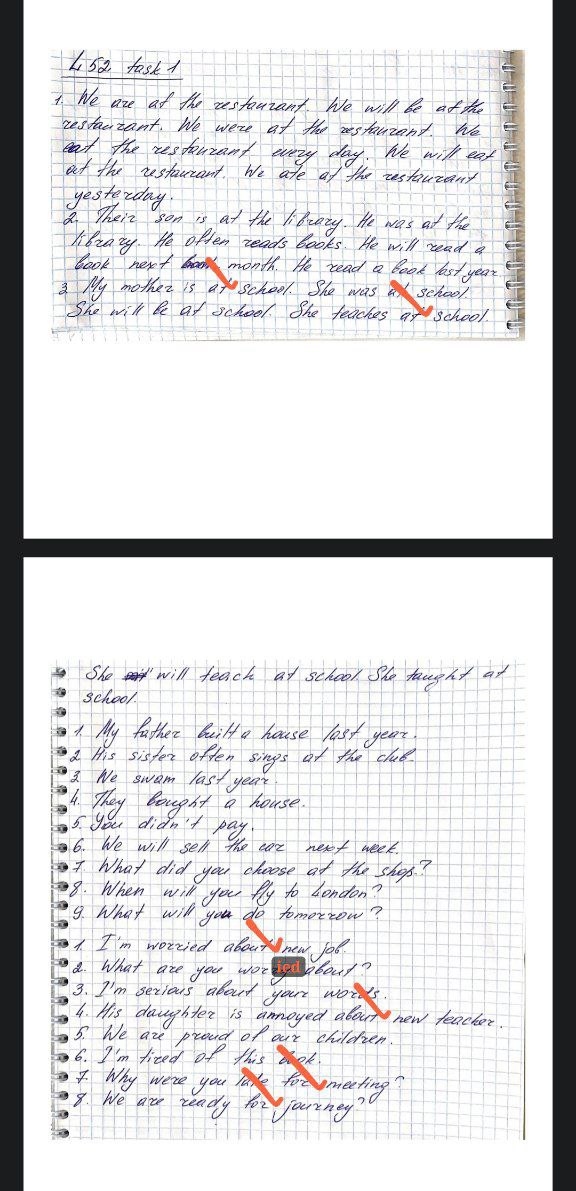 L 52 task 1
1. We are at the restaurant. We will be at the
restaurant. We were at the restaurant. We
eat the restaurant every day. We will eat
at the restaurant. We ate at the restaurant
yesterday.
2. Their son is at the library. He was at the
library. He often reads books. He will read a
book next month. He read a book last year
3. My mother is at school. She was at school.
She will be at school. She teaches at school.
She will teach at school. She taught at
school.
1. My father built a house last year.
2. His sister often sings at the club.
3. We swam last year.
4. They bought a house.
5. You didn't pay.
6. We will sell the car next week.
7. What did you choose at the shop?
8. When will you fly to London?
9. What will you do tomorrow?
1. I'm worried about new job.
2. What are you worried about?
3. I'm serious about your words.
4. His daughter is annoyed about new teacher.
5. We are proud of our children.
6. I'm tired of this book.
7. Why were you late for meeting?
8. We are ready for journey?